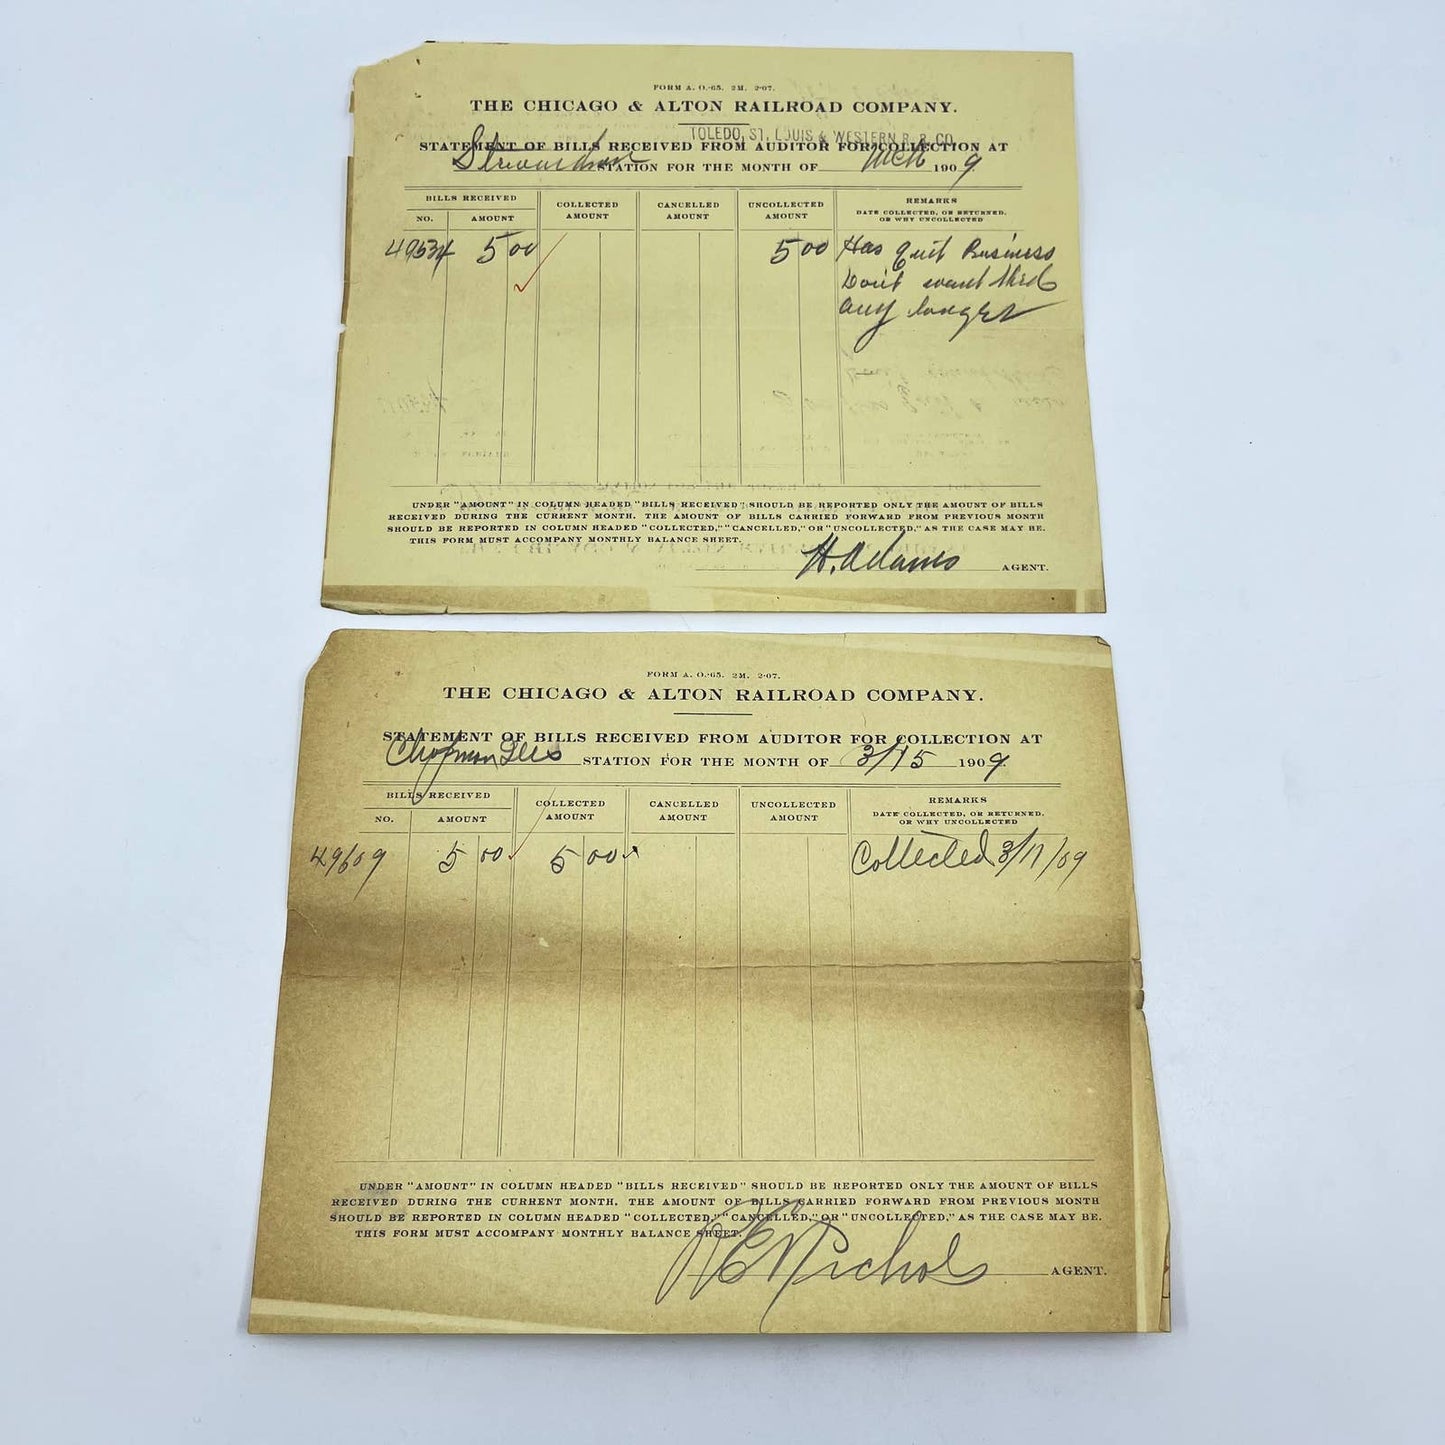 FORM A. O.-65. 2M. 2-07.
THE CHICAGO & ALTON RAILROAD COMPANY.
TOLEDO, ST. LOUIS & WESTERN R. R. CO.
STATEMENT OF BILLS RECEIVED FROM AUDITOR FOR COLLECTION AT
Stewardson STATION FOR THE MONTH OF Mch 1909
BILLS RECEIVED
NO. AMOUNT
COLLECTED AMOUNT
CANCELLED AMOUNT
UNCOLLECTED AMOUNT
REMARKS
DATE COLLECTED, OR RETURNED,
OR WHY UNCOLLECTED
49534 5 00 5 00 Has quit Business
Don't want
any longer
UNDER "AMOUNT" IN COLUMN HEADED "BILLS RECEIVED" SHOULD BE REPORTED ONLY THE AMOUNT OF BILLS
RECEIVED DURING THE CURRENT MONTH. THE AMOUNT OF BILLS CARRIED FORWARD FROM PREVIOUS MONTH
SHOULD BE REPORTED IN COLUMN HEADED "COLLECTED," "CANCELLED," OR "UNCOLLECTED," AS THE CASE MAY BE.
THIS FORM MUST ACCOMPANY MONTHLY BALANCE SHEET.
H. Adams AGENT.
FORM A. O.-65. 2M. 2-07.
THE CHICAGO & ALTON RAILROAD COMPANY.
STATEMENT OF BILLS RECEIVED FROM AUDITOR FOR COLLECTION AT
Chapman Ills STATION FOR THE MONTH OF 3/15 1909
BILLS RECEIVED
NO. AMOUNT
COLLECTED AMOUNT
CANCELLED AMOUNT
UNCOLLECTED AMOUNT
REMARKS
DATE COLLECTED, OR RETURNED,
OR WHY UNCOLLECTED
49609 5 00 5 00 Collected 3/17/09
UNDER "AMOUNT" IN COLUMN HEADED "BILLS RECEIVED" SHOULD BE REPORTED ONLY THE AMOUNT OF BILLS
RECEIVED DURING THE CURRENT MONTH. THE AMOUNT OF BILLS CARRIED FORWARD FROM PREVIOUS MONTH
SHOULD BE REPORTED IN COLUMN HEADED "COLLECTED," "CANCELLED," OR "UNCOLLECTED," AS THE CASE MAY BE.
THIS FORM MUST ACCOMPANY MONTHLY BALANCE SHEET.
Nichols AGENT.